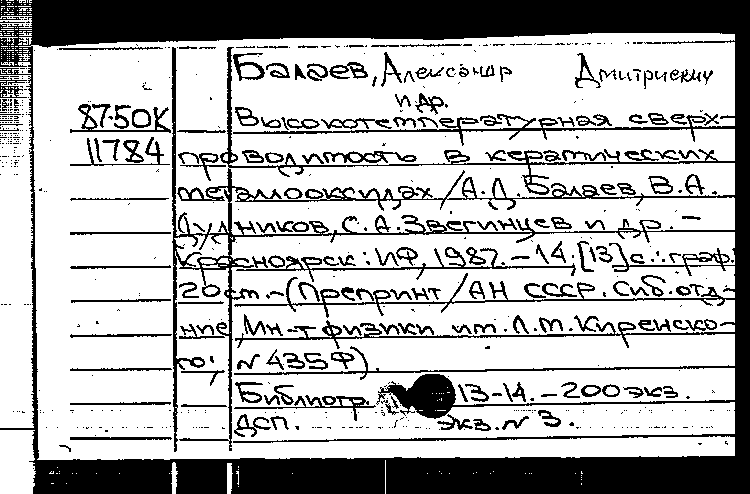 Балаев, Александр Дмитриевич
и др.
87-50К Высокотемпературная сверх-
11784 проводимость в керамических
металлооксидах / А.Д. Балаев, В.А.
Дудников, С.А. Звегинцев и др. -
Красноярск: ИФ, 1987. - 14, [13] с.: граф.
20 см. - (Препринт / АН СССР. Сиб. отд-
ние, Ин-т физики им. Л.М. Киренско-
го; N 435Ф).
Библиогр. 13-14. - 200 экз.
ДСП. экз. N 3.